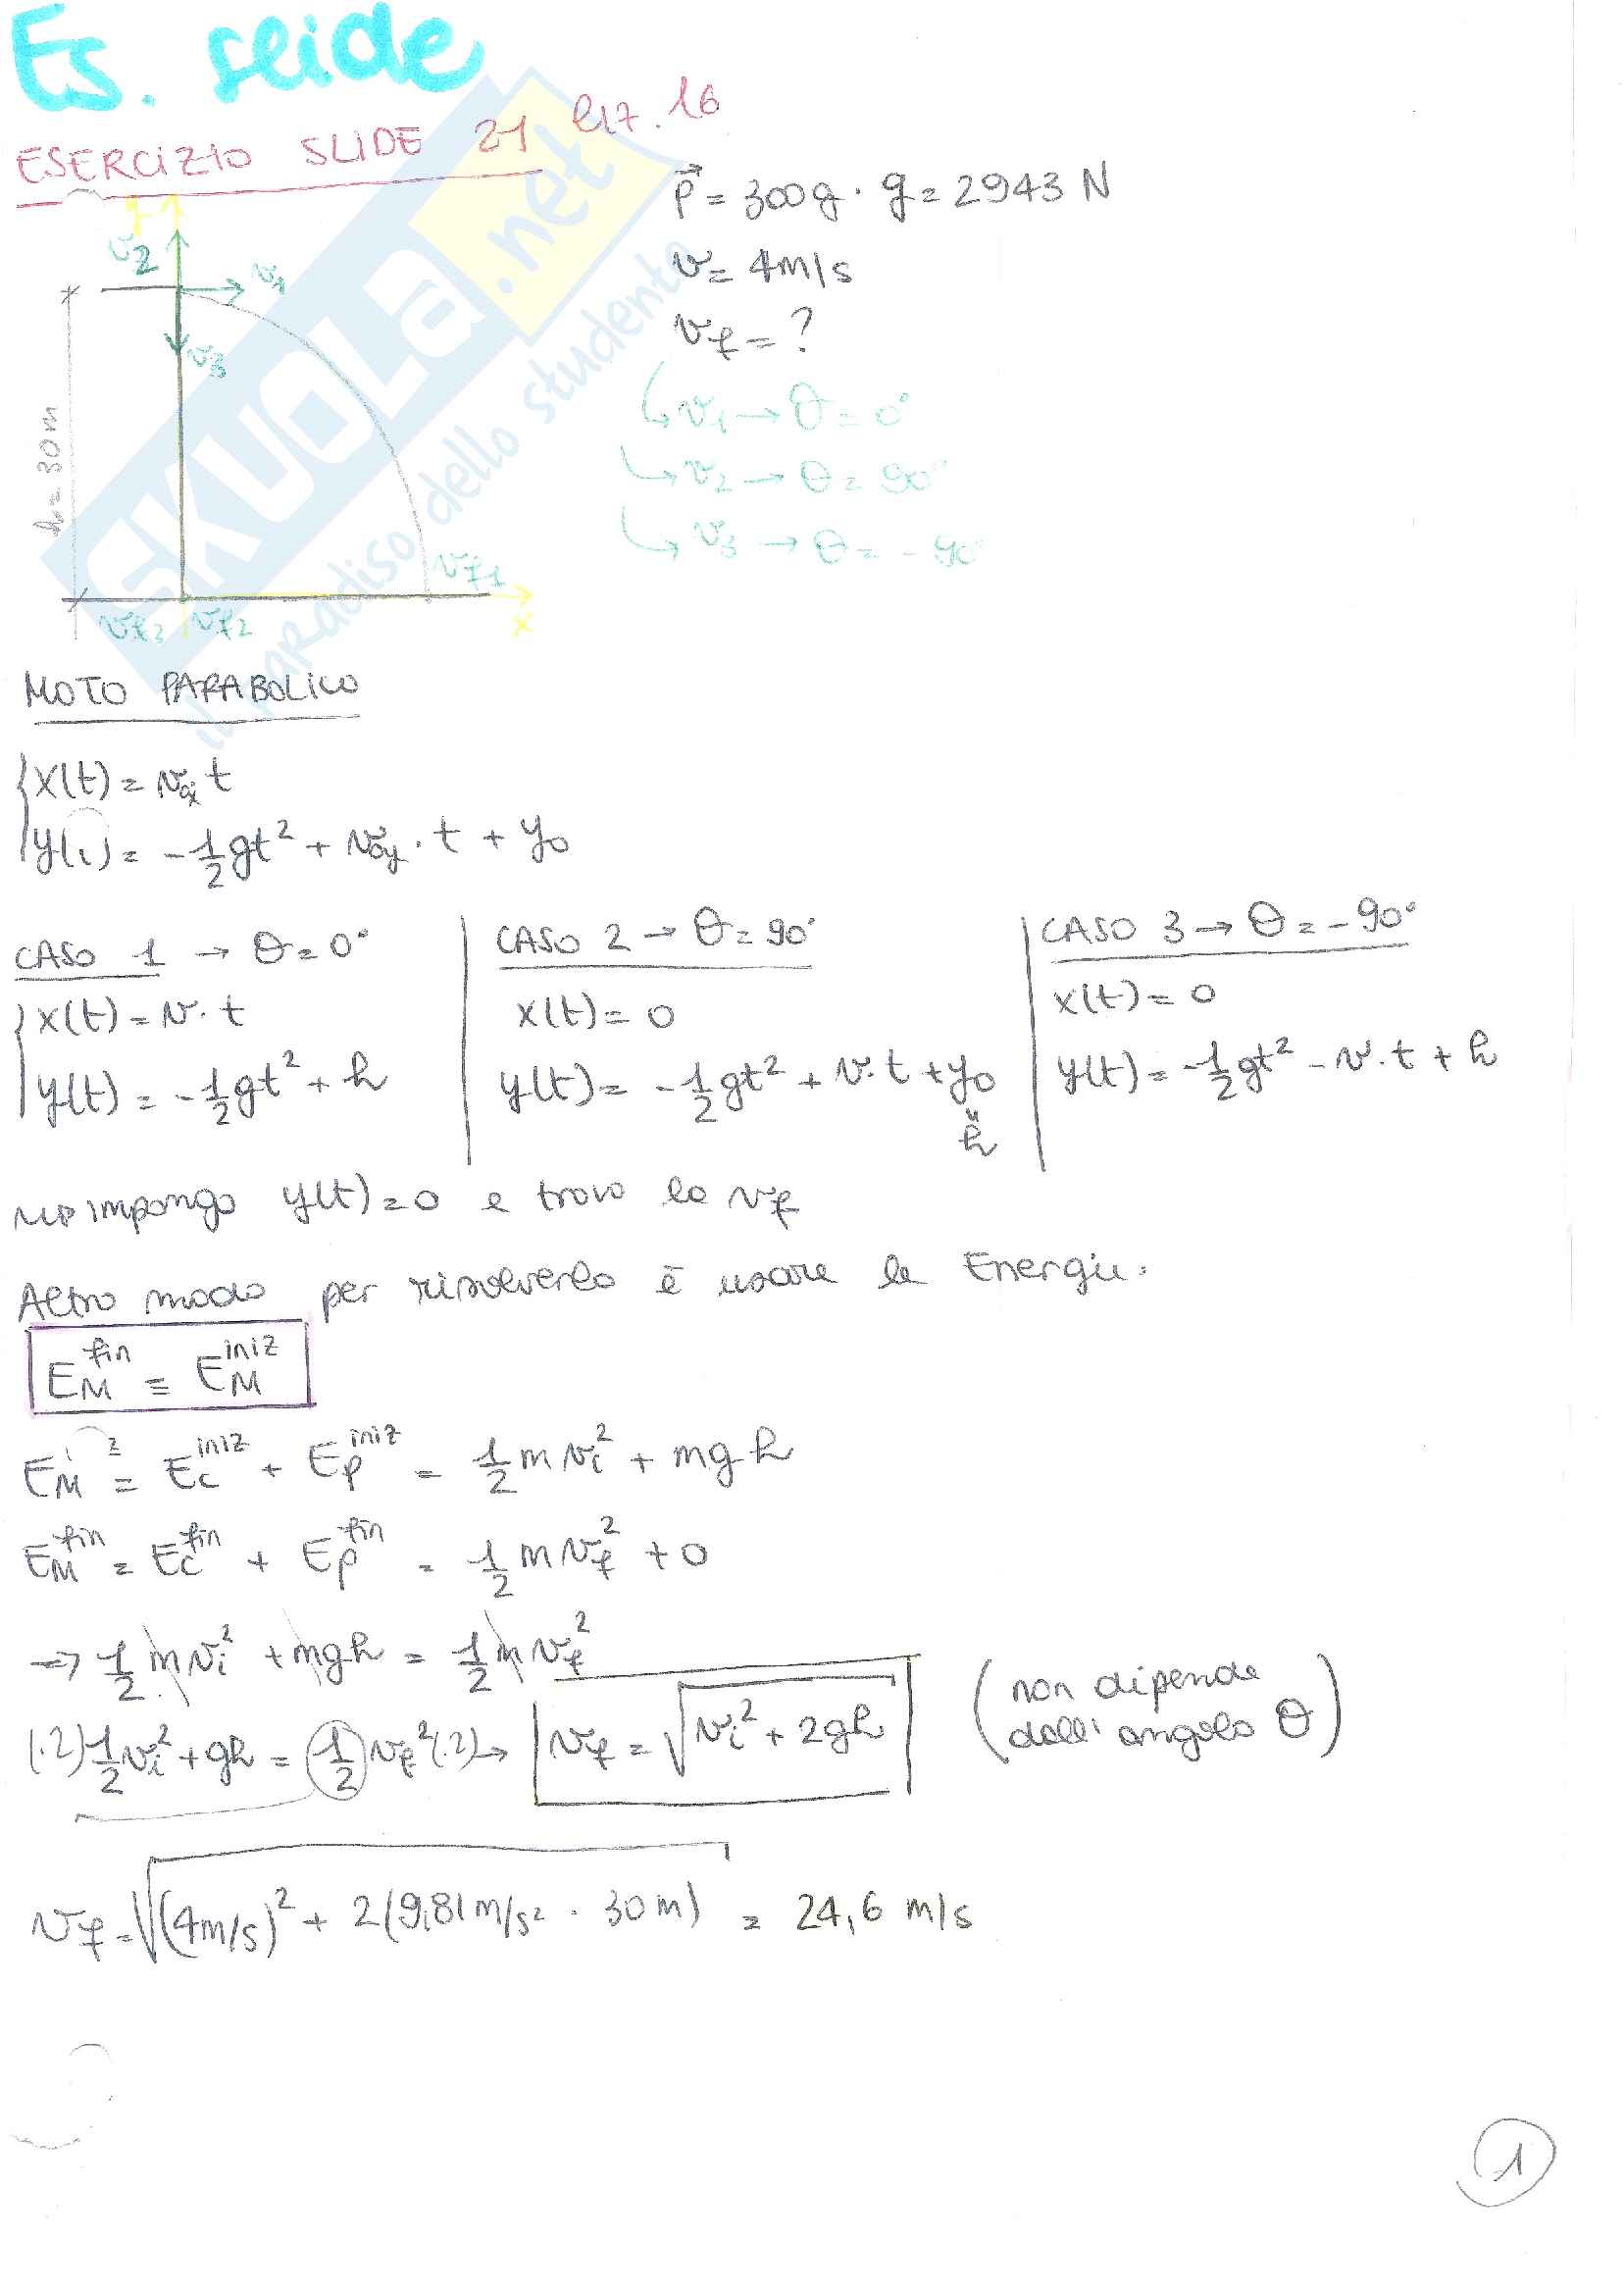 Es. slide
ESERCIZIO SLIDE 21 lez. 16
P = 300g · g = 2943 N
v = 4m/s
v_f = ?
↳ v1 → θ = 0°
↳ v2 → θ = 90°
↳ v3 → θ = -90°
y
v2
v1
v3
h = 30m
v_f1
v_f3 v_f2
x
SKUOLA.net
il paradiso dello studente
MOTO PARABOLICO
x(t) = v_ox t
y(t) = -1/2 gt² + v_oy · t + y0
CASO 1 → θ = 0°
x(t) = v · t
y(t) = -1/2 gt² + h
CASO 2 → θ = 90°
x(t) = 0
y(t) = -1/2 gt² + v · t + y0
h
CASO 3 → θ = -90°
x(t) = 0
y(t) = -1/2 gt² - v · t + h
impongo y(t) = 0 e trovo la v_f
Altro modo per risolverlo è usare le Energie.
E_M^fin = E_M^iniz
E_M = E_c^iniz + E_p^iniz = 1/2 m v_i² + mgh
E_M^fin = E_c^fin + E_p^fin = 1/2 m v_f² + 0
→ 1/2 m v_i² + mgh = 1/2 m v_f²
(·2) 1/2 v_i² + gh = 1/2 v_f² (·2) → v_f = √(v_i² + 2gh) (non dipende dall'angolo θ)
v_f = √((4m/s)² + 2(9,81m/s² · 30m) = 24,6 m/s
1